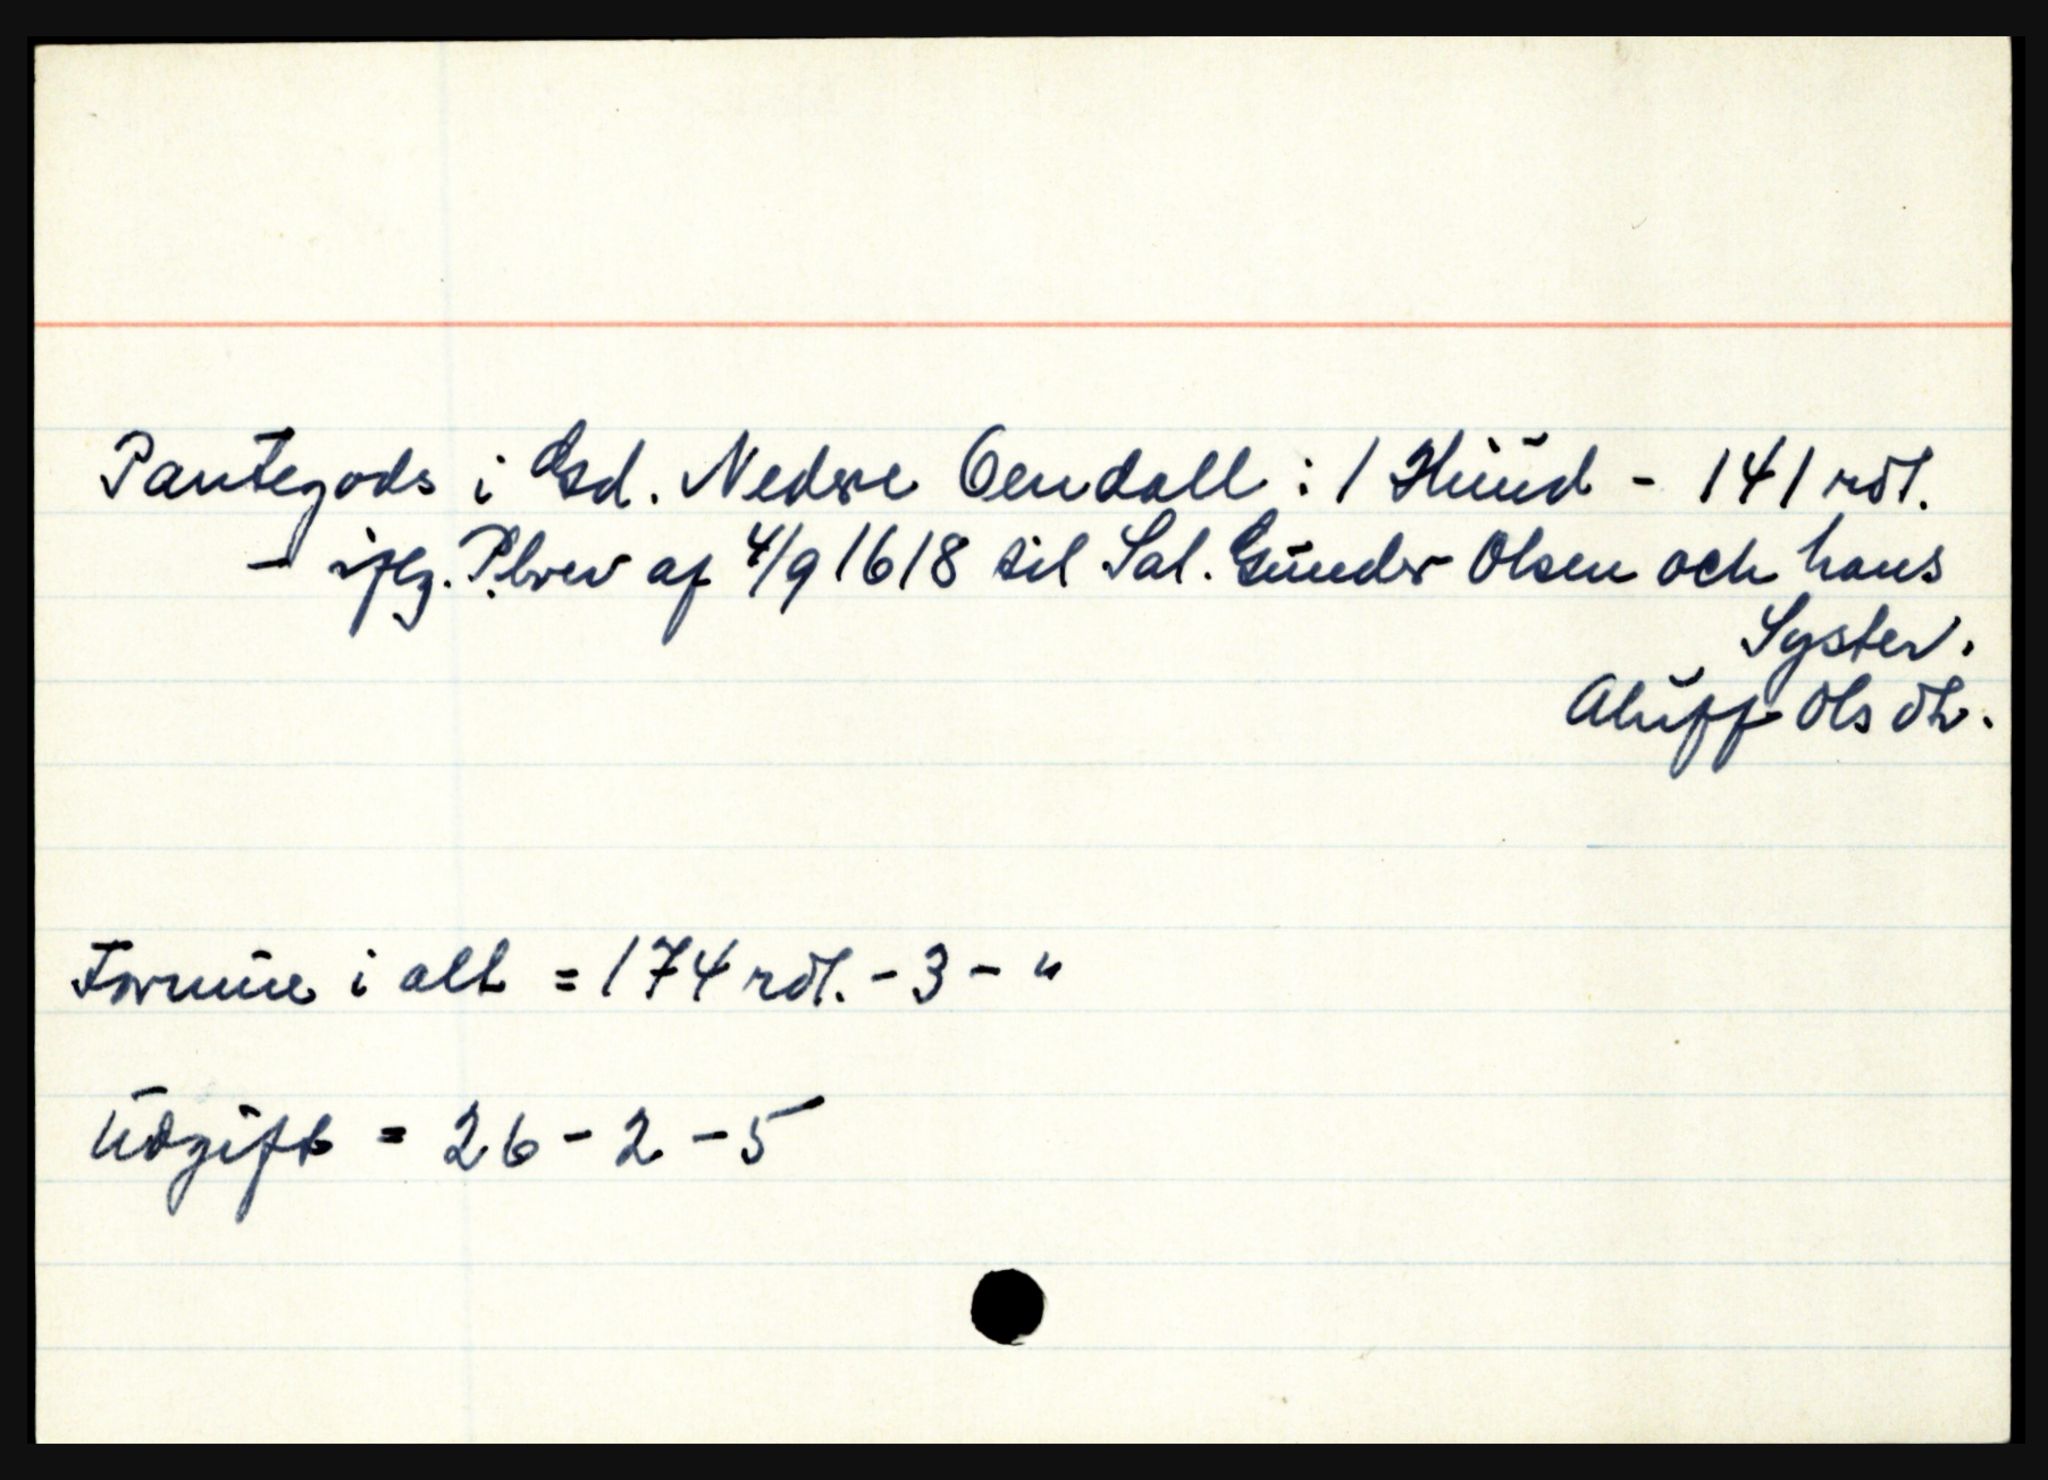 Pantegods i Gsd. Nedre Oendall : 1 Huud - 141 rdl.
- iflg. P.brev af 4/9 1618 til Sal. Gunder Olsen och hans
Syster.
Aluff Ols dtr.
Formue i alt = 174 rdl. - 3 - "
Udgift = 26 - 2 - 5